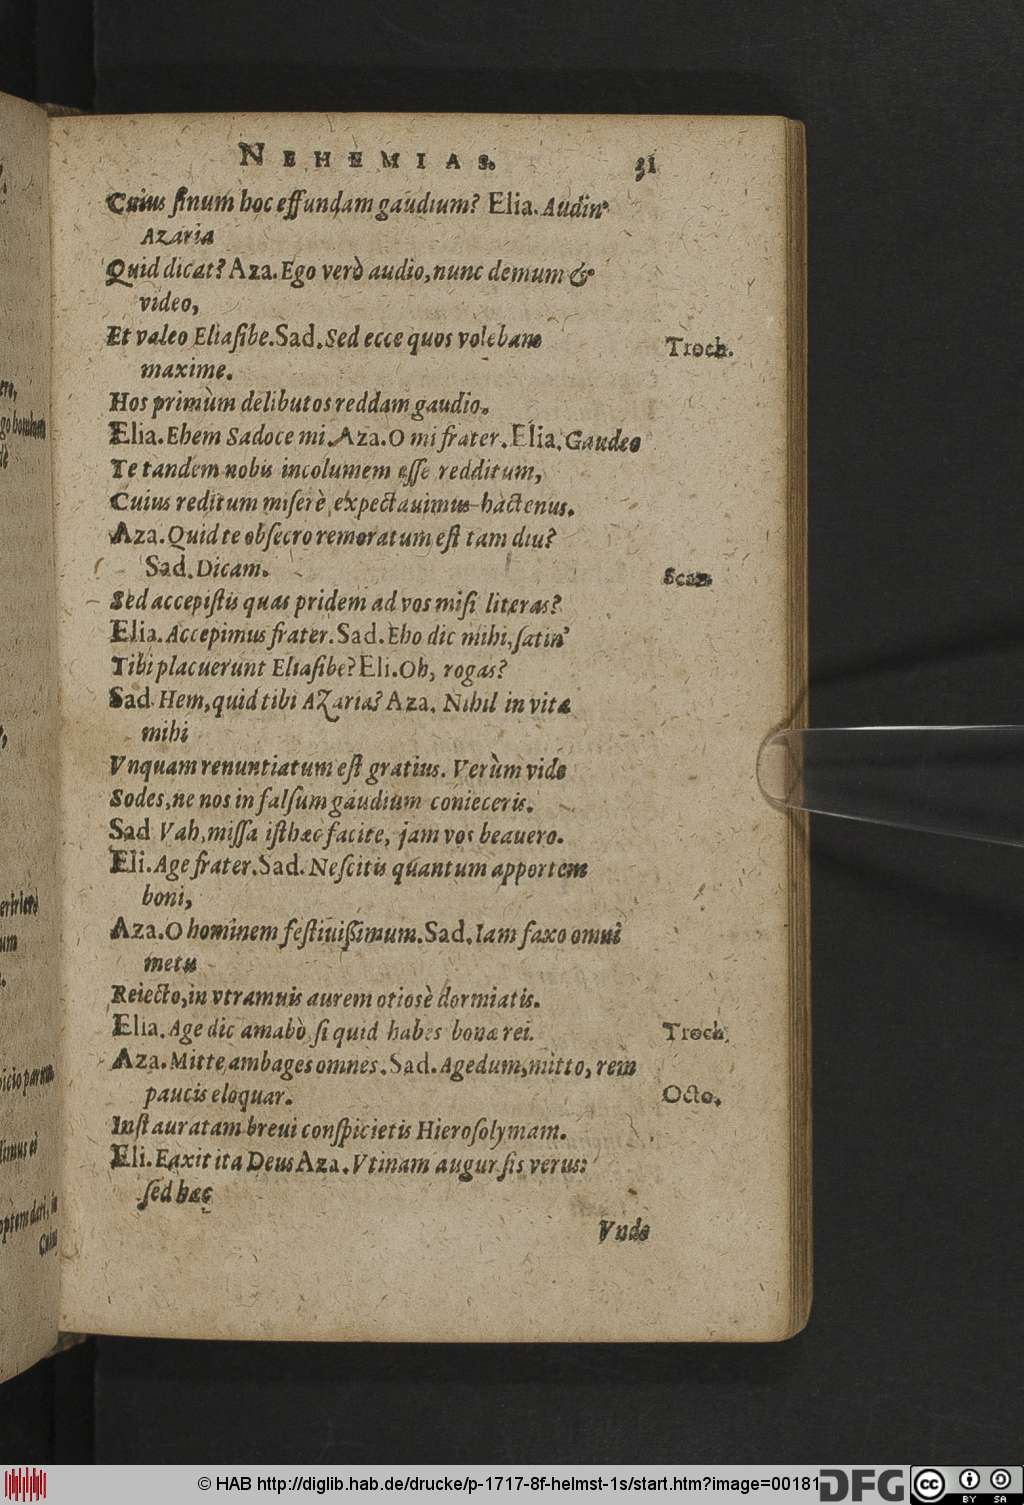 NEHEMIAS. 31
Cuius sinum hoc effundam gaudium? Elia. Audin'
Azaria
Quid dicat? Aza. Ego verò audio, nunc demum &
video,
Et valeo Eliasibe. Sad. Sed ecce quos volebam
Troch.
maxime.
Hos primùm delibutos reddam gaudio.
Elia. Ehem Sadoce mi. Aza. O mi frater. Elia. Gaudeo
Te tandem nobis incolumem esse redditum,
Cuius reditum miserè expectauimus hactenus.
Aza. Quid te obsecro remoratum est tam diu?
Sad. Dicam.
Scaz
Sed accepistis quas pridem ad vos misi literas?
Elia. Accepimus frater. Sad. Eho dic mihi, satin'
Tibi placuerunt Eliasibe? Eli. Oh, rogas?
Sad. Hem, quid tibi Azaria? Aza. Nihil in vita
mihi
Vnquam renuntiatum est gratius. Verùm vide
Sodes, ne nos in falsum gaudium conieceris.
Sad Vah, missa isthæc facite, jam vos beauero.
Eli. Age frater. Sad. Nescitis quantum apportem
boni,
Aza. O hominem festiuissimum. Sad. Iam faxo omni
metu
Reiecto, in vtramuis aurem otiosè dormiatis.
Elia. Age dic amabò si quid habes bonæ rei.
Troch.
Aza. Mitte ambages omnes. Sad. Agedum, mitto, rem
paucis eloquar.
Octo.
Instauratam breui conspicietis Hierosolymam.
Eli. Faxit ita Deus Aza. Vtinam augur sis verus:
sed hæc
Vnde
© HAB http://diglib.hab.de/drucke/p-1717-8f-helmst-1s/start.htm?image=00181
DFG
cc
BY SA